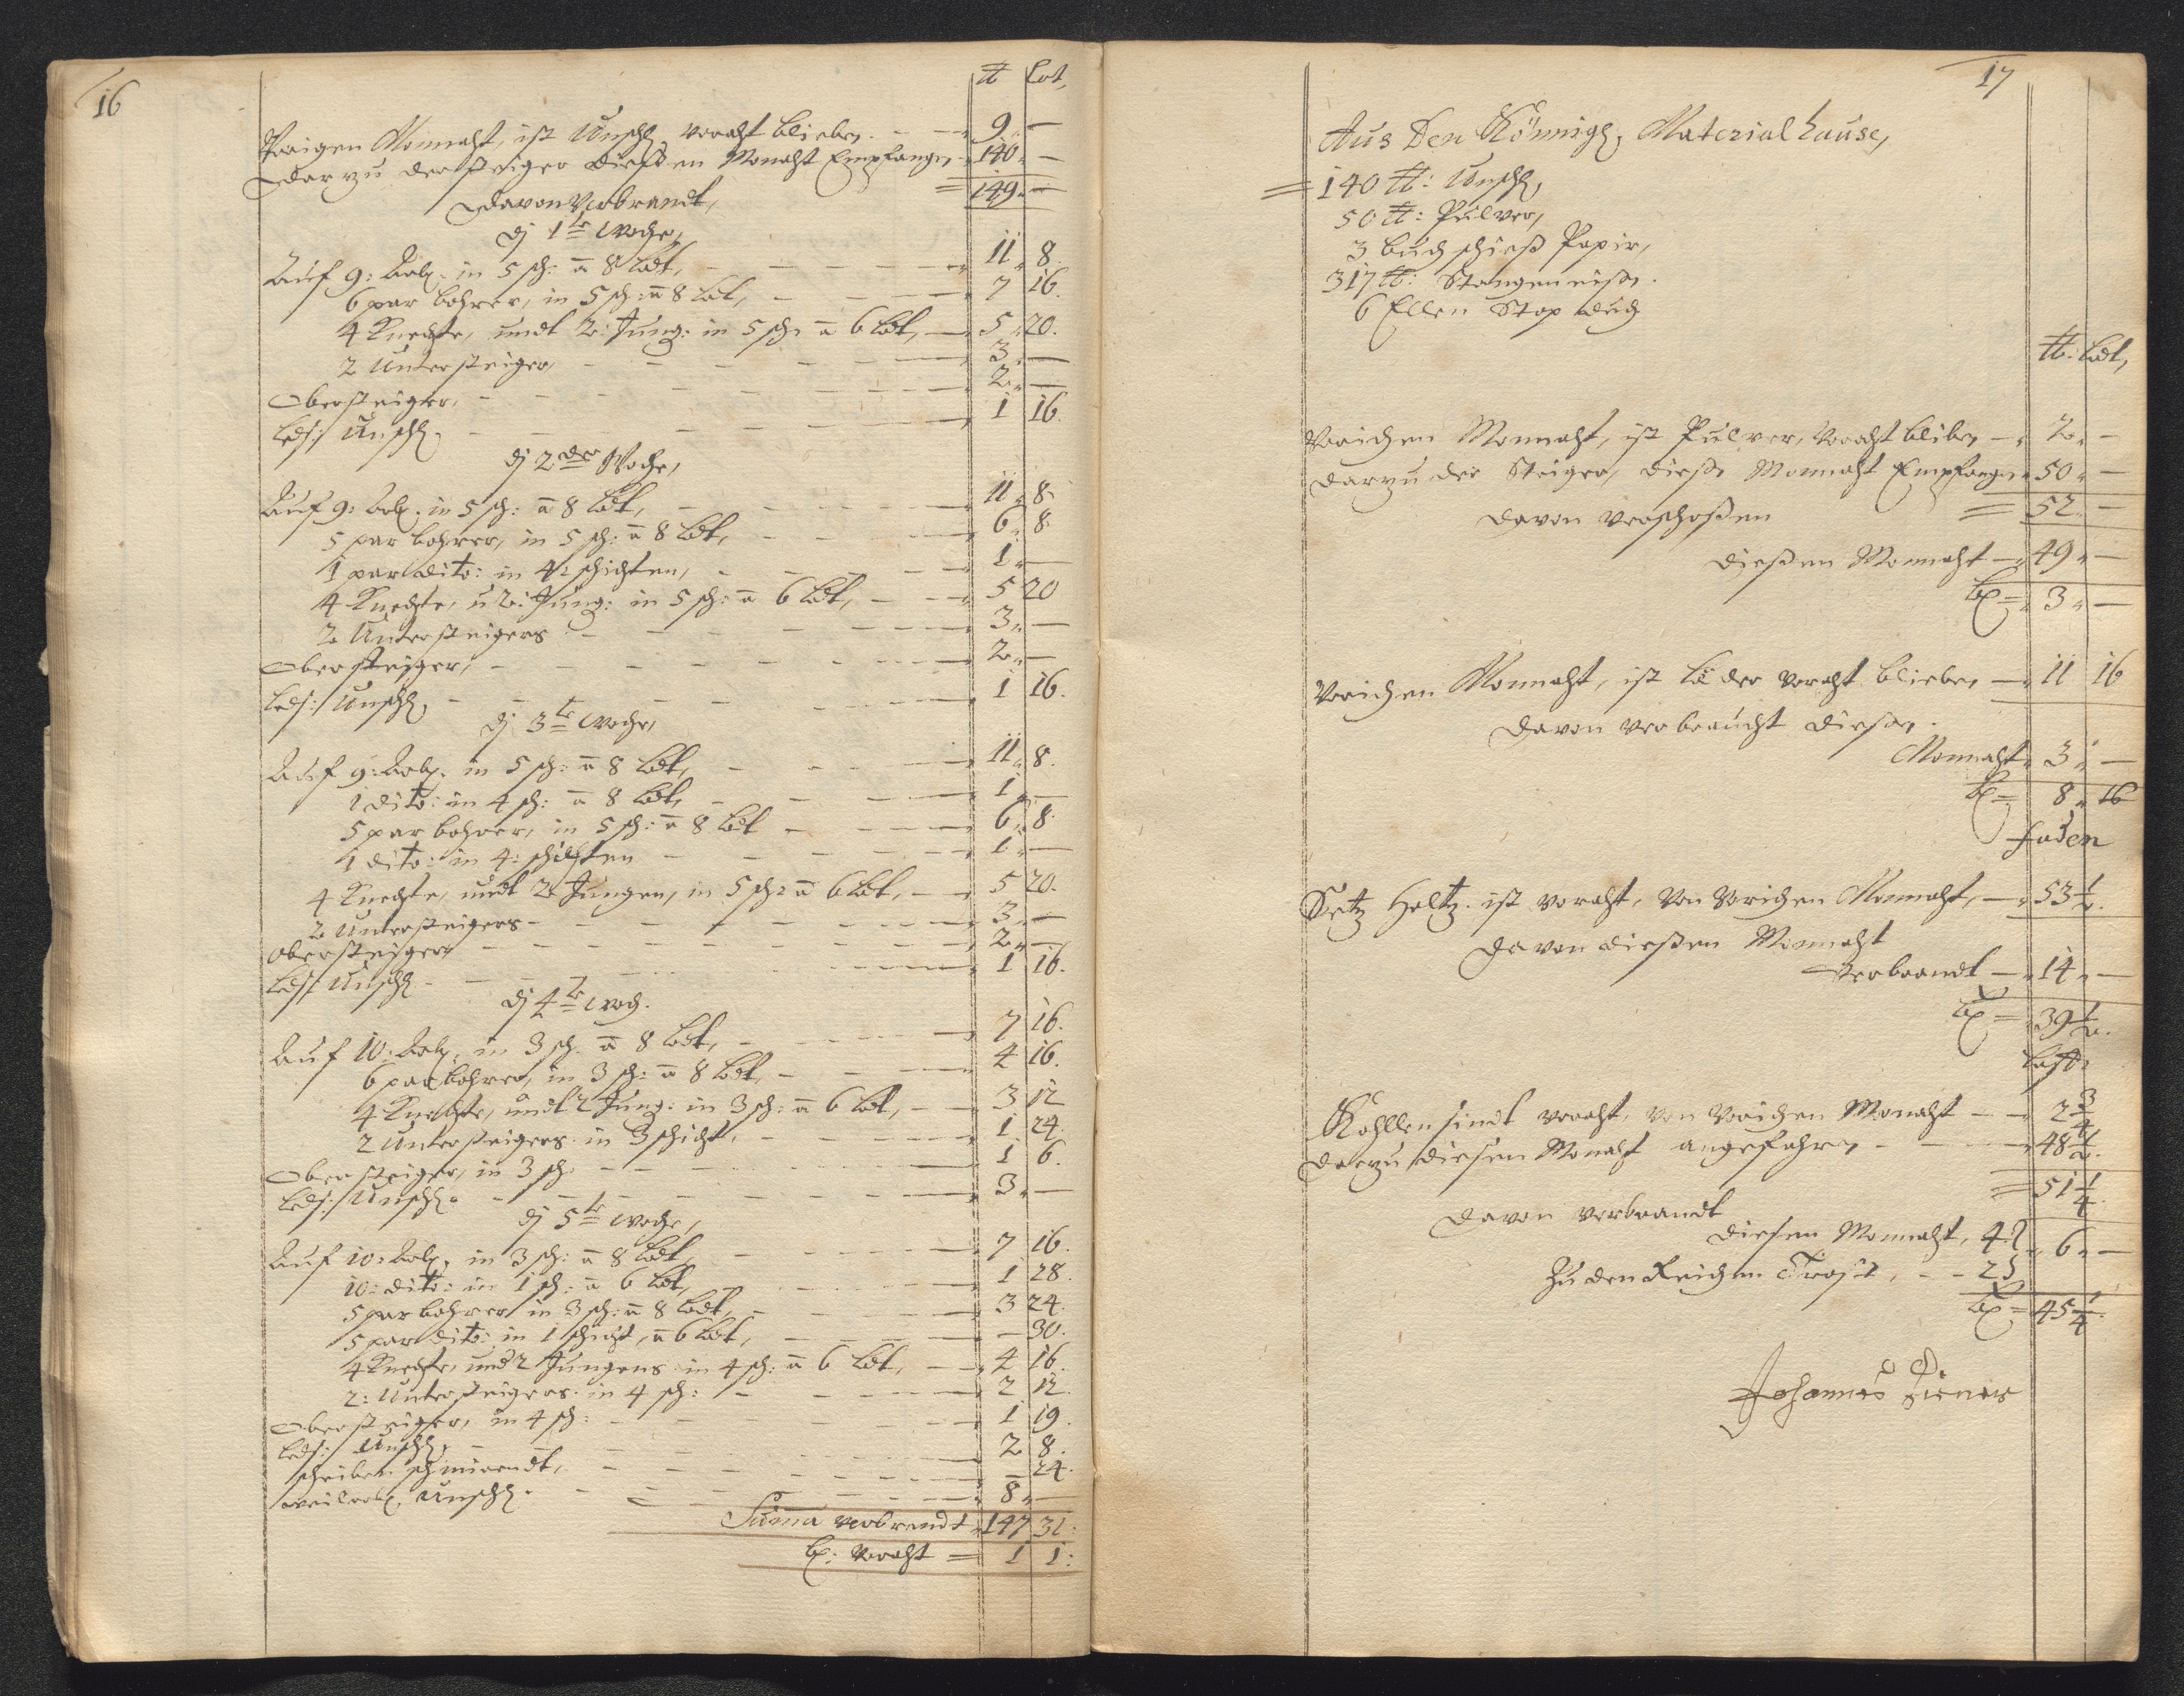 16
℔ Lot,
Vorigen Monnaht, ist Unschl, voraht blieben. — 9 —
Darzu der steiger dießen Monaht Empfangen — 140 —
= 149 —
Davon Verbrandt,
dj 1te Woche,
Auf 9: Arb. in 5 sch: a 8 Lodt, — 11 8.
6 par bohrer, in 5 sch: a 8 Lot, — 7 16.
4 Knechte, undt 2: Jung: in 5 sch: a 6 Lot, — 5 20.
2 Untersteiger, — 3 —
Obersteiger, — 2 —
Leds: Unschl. — 1 16.
dj 2der Woche,
Auf 9: Arb. in 5 sch: a 8 Lodt, — 11 8.
5 par bohrer, in 5 sch: a 8 Lodt, — 6 8.
1 par dito: in 4: schichten, — 1 —
4 Knechte, u 2: Jung: in 5 sch: a 6 Lodt, — 5 20
2 Untersteigers — 3 —
Obersteiger, — 2 —
Leds: Unschl, — 1 16.
dj 3te Woche,
Auf 9: Arb. in 5 sch: a 8 Lodt, — 11 8.
1 dito: in 4 sch: a 8 Lodt, — 1 —
5 par bohrer, in 5 sch: a 8 Lodt — 6 8.
1 dito: in 4: schichten — 1 —
4 Knechte, undt 2 Jungen, in 5 sch: a 6 Lot, — 5 20.
2 Untersteigers — 3 —
Obersteigers — 2 —
Leds: Unschl — 1 16.
dj 4te Woch.
Auf 10: Arb. in 3 sch. a 8 Lodt, — 7 16.
6 par bohrer, in 3 sch: a 8 Lodt, — 4 16.
4 Knechte, undt 2 Jung: in 3 sch: a 6 Lot, — 3 12
2 Untersteigers in 3 schicht, — 1 24.
Obersteiger, in 3 sch. — 1 6.
Leds: Unschl. — 3 —
dj 5te Woche,
Auf 10: Arb. in 3 sch: a 8 Lodt, — 7 16.
10: dito: in 1 sch: a 6 Lot, — 1 28.
5 par bohrer in 3 sch: a 8 Lodt, — 3 24.
5 par dito: in 1 schicht, a 6 Lot, — — 30.
4 Knechte, und 2 Jungens in 4 sch: a 6 Lot, — 4 16.
2: Untersteigers. in 4 sch: — 2 12.
Obersteiger, in 4 sch: — 1 19.
Leds: Unschl, — 2 8.
— 24.
Unschl. — 8 —
Suma verbrandt 147 31:
voraht = 1 1:
17
Aus Den Königl, Materialhause,
= 140 ℔: Unschl,
50 ℔: Pulver,
3 buch schieß Papir,
317 ℔: Stangen eisen.
6 Ellen Stop tuch
℔: Lodt,
Vorichen Monnaht, ist Pulver, Voraht bliben — 2 —
Darzu der Steiger, dießen Monnaht Empfangen 50 —
Davon verschoßen = 52 —
dießen Monnaht — 49 —
= 3 —
Vorichen Monnaht, ist Läder voraht blieben — 11 16
Davon verbraucht diesen.
Monnaht 3 —
= 8 16
faden
Setz Holtz. ist voraht, Von Vorichen Monnaht, — 53 1/2.
Davon dießen Monnaht
Verbrandt — 14 —
= 39 1/2.
Last.
Kohllen sindt voraht, von Vorichen Monaht — 2 3/4
Darzu diesen Monaht angefahren — 48 1/2.
= 51 1/4.
Davon verbrandt
diesen Monnaht, 4 } 6 —
Zu den Reichen Trost, — 2
= 45 1/4.
Johannes